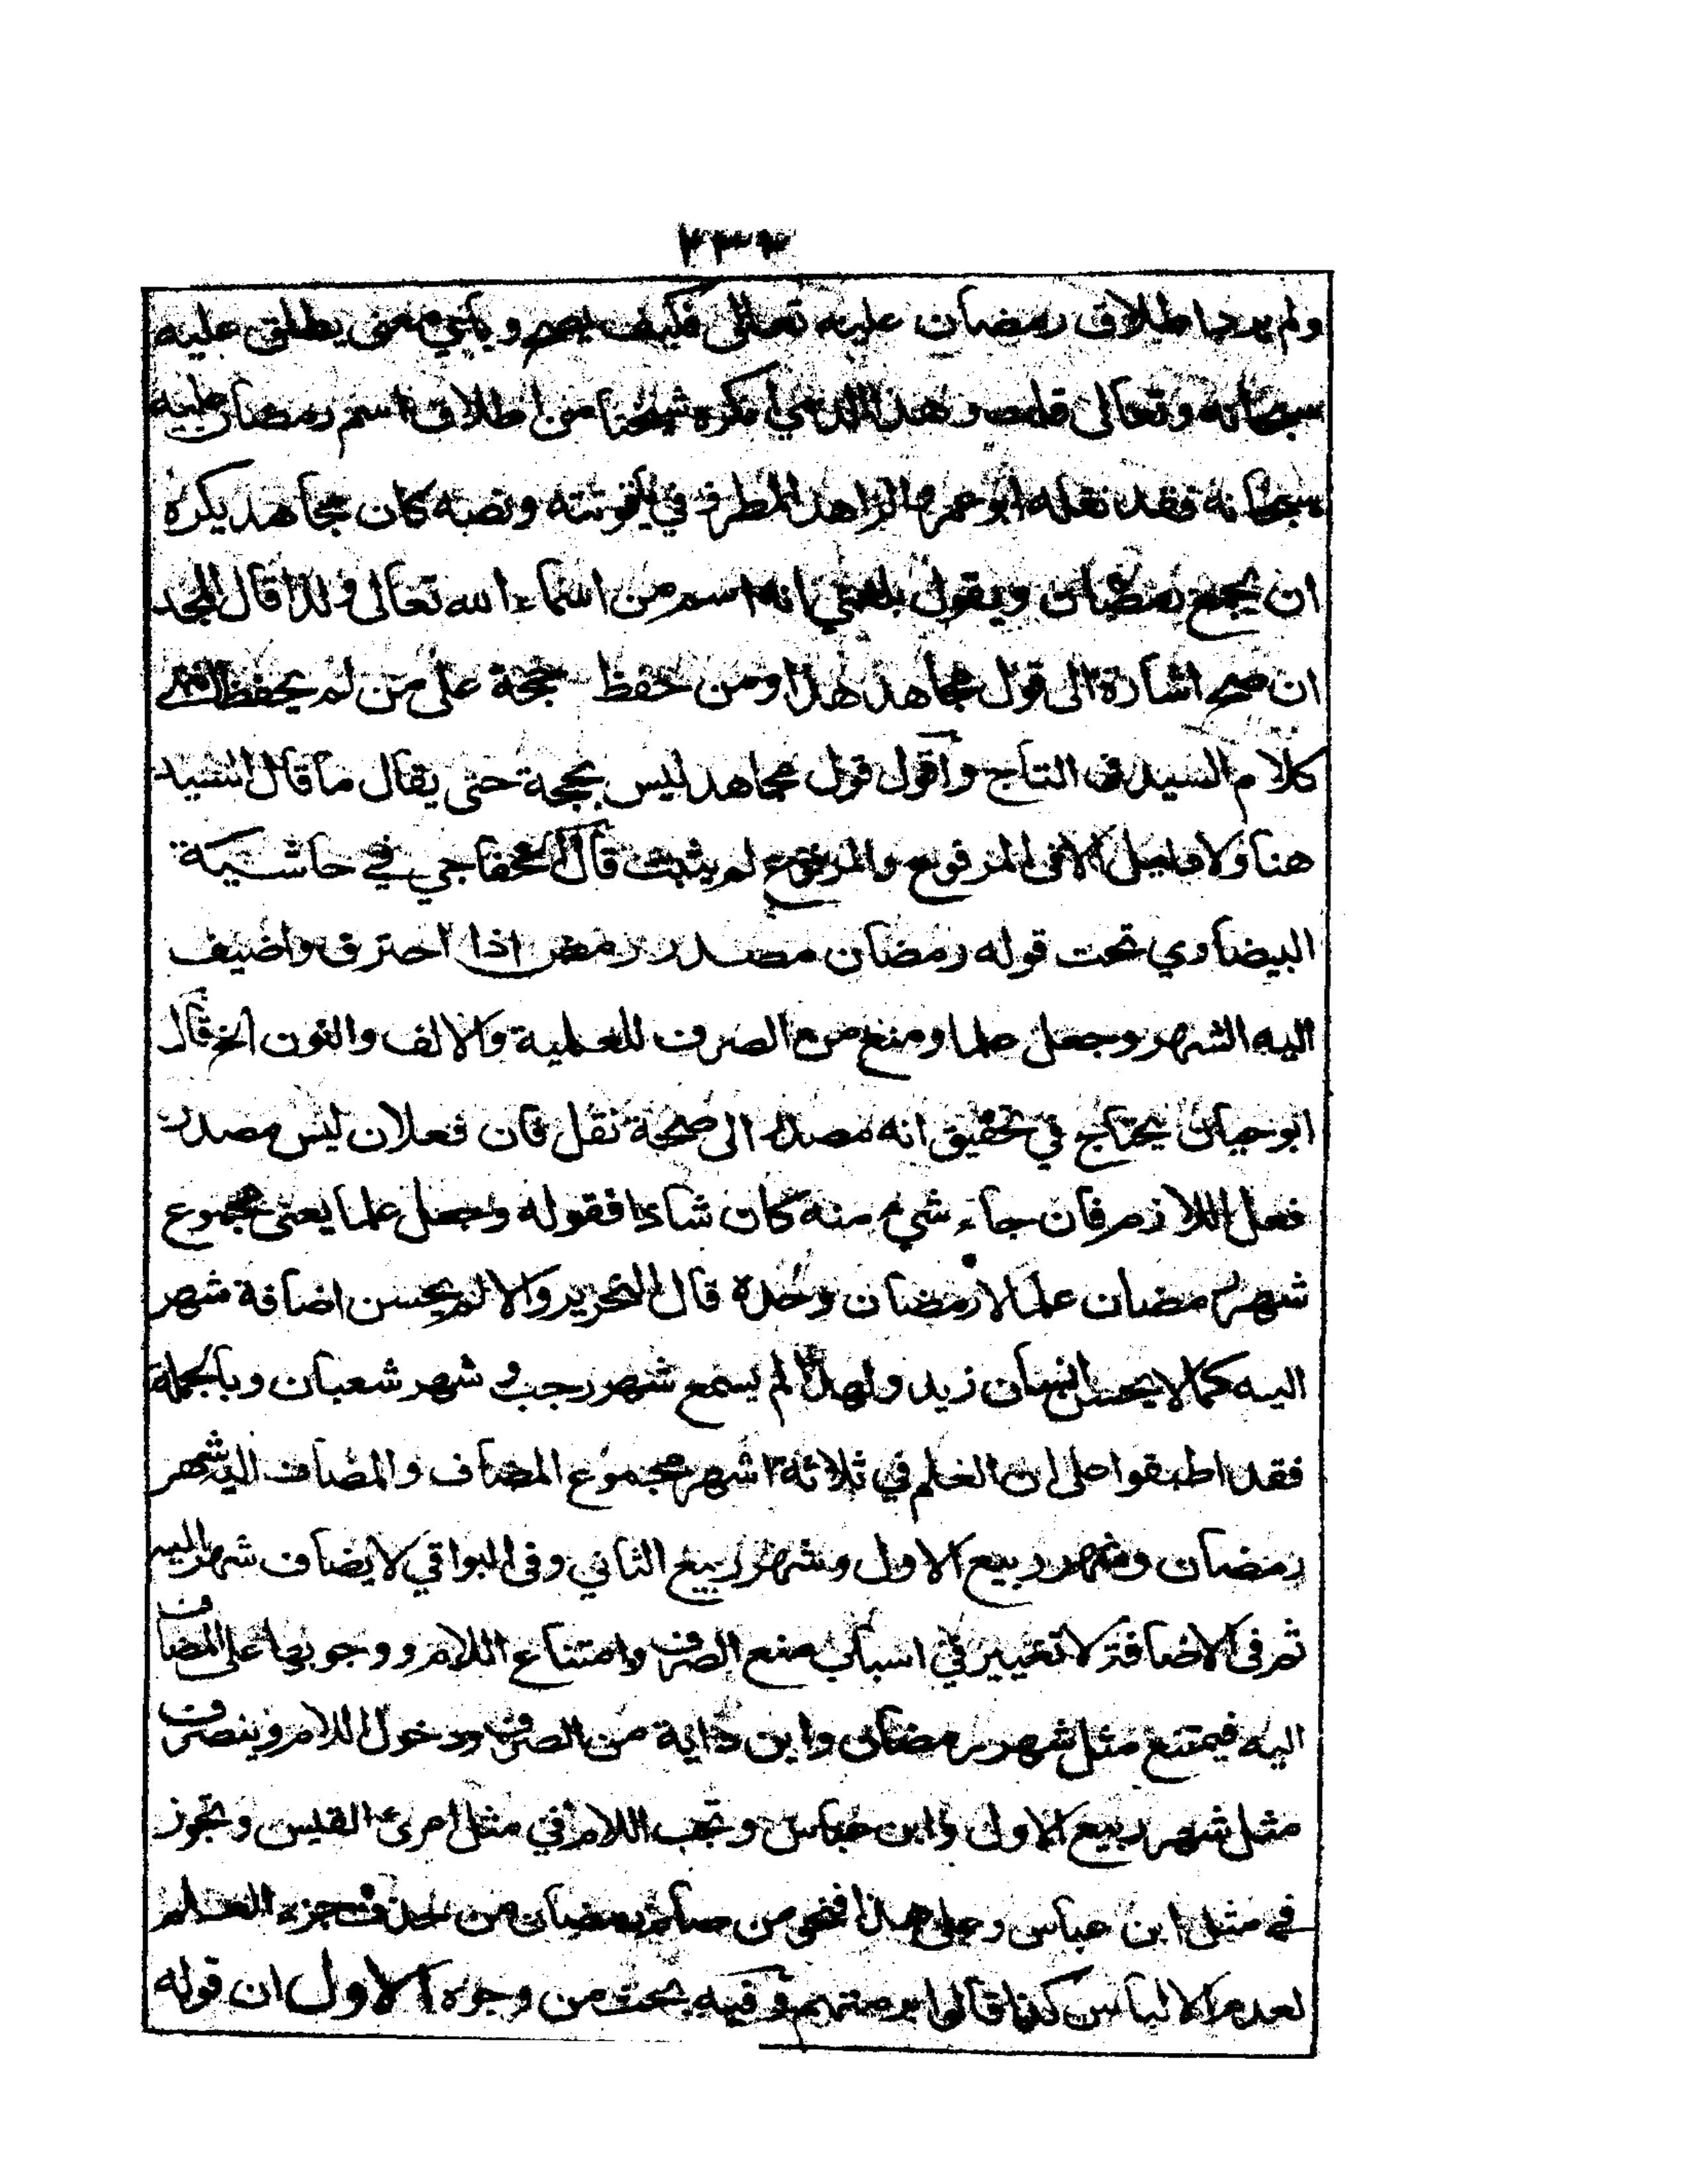 ولم يرد اطلاق رمضان عليه تعالى فكيف يصح وباي معنى يطلق عليه
سبحانه وتعالى قلت وهذا الذي انكره شيخنا من اطلاق اسم رمضان عليه
سبحانه فقد نقله ابو عمر الزاهد المطرز في ياقوتته ونصه كان مجاهد يكره
ان يجمع رمضان ويقول بلغني انه اسم من اسماء الله تعالى ولذا قال المجد
ان صح اشارة الى قول مجاهد هذا ومن حفظ حجة على من لم يحفظ انتهى
كلام السيد في التاج واقول قول مجاهد ليس بحجة حتى يقال ما قال السيد
هنا ولا دليل الا في المرفوع والمرفوع لم يثبت قال الخفاجي في حاشية
البيضاوي تحت قوله رمضان مصدر رمض اذا احترق واضيف
اليه الشهر وجعل علما ومنع من الصرف للعلمية والالف والنون الخ قال
ابو حيان يحتاج في تحقيق انه مصدر الى صحة نقل فان فعلان ليس مصدر
فعل اللازم فان جاء شيء منه كان شاذا فقوله وجعل علما يعنى مجموع
شهر رمضان علما لا رمضان وحده قال التحرير والا لم يحسن اضافة شهر
اليه كما لا يحسن انسان زيد ولهذا لم يسمع شهر رجب و شهر شعبان وبالجملة
فقد اطبقوا على ان العلم في ثلاثة اشهر مجموع المضاف والمضاف اليه شهر
رمضان وشهر ربيع الاول وشهر ربيع الثاني وفى البواقي لا يضاف شهر اليه
ثم فى الاضافة لا تغيير في اسباب منع الصرف وامتناع اللام ووجوبها على المضاف
اليه فيمتنع مثل شهر رمضان وابن داية من الصرف ودخول اللام وينصرف
مثل شهر ربيع الاول وابن عباس وتجب اللام في مثل امرئ القيس وتجوز
في مثل ابن عباس وعلى هذا فنحو من صام رمضان من حذف جزء العلم
لعدم الالباس كذا قالوا برمتهم وفيه بحث من وجوه الاول ان قوله